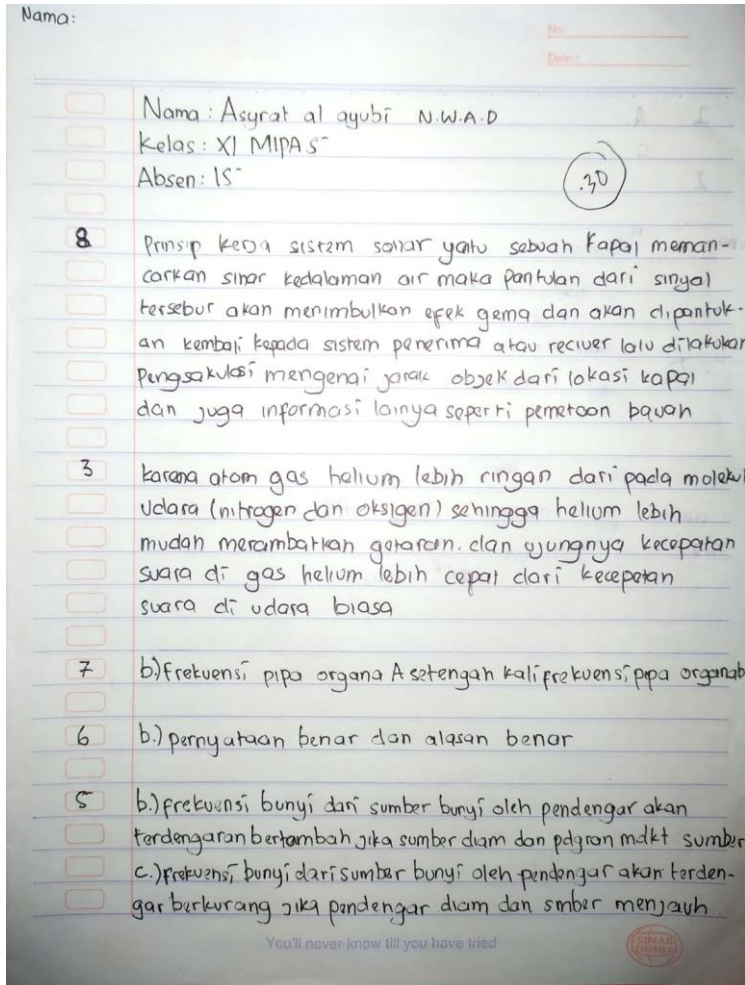 Nama:
No.
Date:
Nama : Asyrat al ayubi N.W.A.D
Kelas : XI MIPA 5
Absen : 15
.30
8 Prinsip kerja sistem sonar yaitu sebuah kapal meman-
carkan sinar kedalaman air maka pantulan dari sinyal
tersebut akan menimbulkan efek gema dan akan dipantuk-
an kembali kepada sistem penerima atau reciver lalu dilakukan
pengsakulasi mengenai jarak objek dari lokasi kapal
dan juga informasi lainya seperti pemetaan bawah
3 karena atom gas helium lebih ringan dari pada molekul
udara (nitrogen dan oksigen) sehingga helium lebih
mudah merambatkan getaran. dan ujungnya kecepatan
suara di gas helium lebih cepat dari kecepatan
suara di udara biasa
7 b.) frekuensi pipa organa A setengah kali frekuensi pipa organa b
6 b.) pernyataan benar dan alasan benar
5 b.) frekuensi bunyi dari sumber bunyi oleh pendengar akan
terdengaran bertambah jika sumber diam dan pdgran mdkt sumber
c.) frekuensi bunyi dari sumber bunyi oleh pendengar akan terden-
gar berkurang jika pendengar diam dan smber menjauh
You'll never know till you have tried
SINAR DUNIA